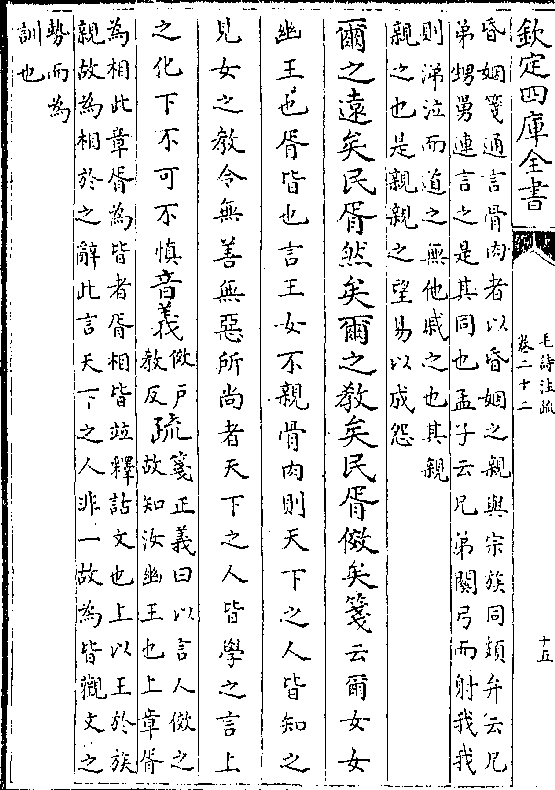 欽定四庫全書
毛詩注疏
卷二十二
十五
昏姻箋通言骨肉者以昏姻之親與宗族同頍弁云兄
弟甥舅連言之是其同也孟子云兄弟關弓而射我我
則涕泣而道之無他戚之也其親
親之也是親親之望易以成怨
爾之遠矣民胥然矣爾之教矣民胥傚矣箋云爾女女
幽王也胥皆也言王女不親骨肉則天下之人皆知之
見女之教令無善無惡所尚者天下之人皆學之言上
之化下不可不慎音義傚户
教反疏箋正義曰以言人傚之
故知汝幽王也上章胥
為相此章胥為皆者胥相皆竝釋詁文也上以王於族
親故為相於之辭此言天下之人非一故為皆觀文之
勢而為
訓也